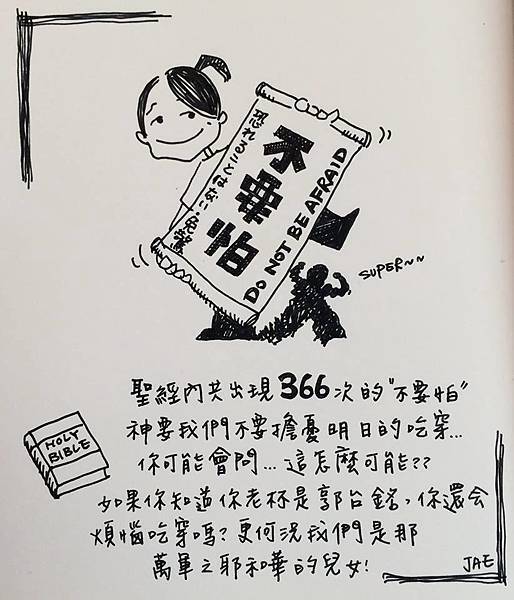 恐れることはない・免驚
不要怕
DO NOT BE AFRAID
SUPER~~
聖經內共出現366次的"不要怕"
神要我們不要擔憂明日的吃穿...
HOLY BIBLE
你可能會問...這怎麼可能??
如果你知道你老杯是郭台銘，你還会
煩惱吃穿嗎?更何況我們是那
萬軍之耶和華的兒女!
JAE